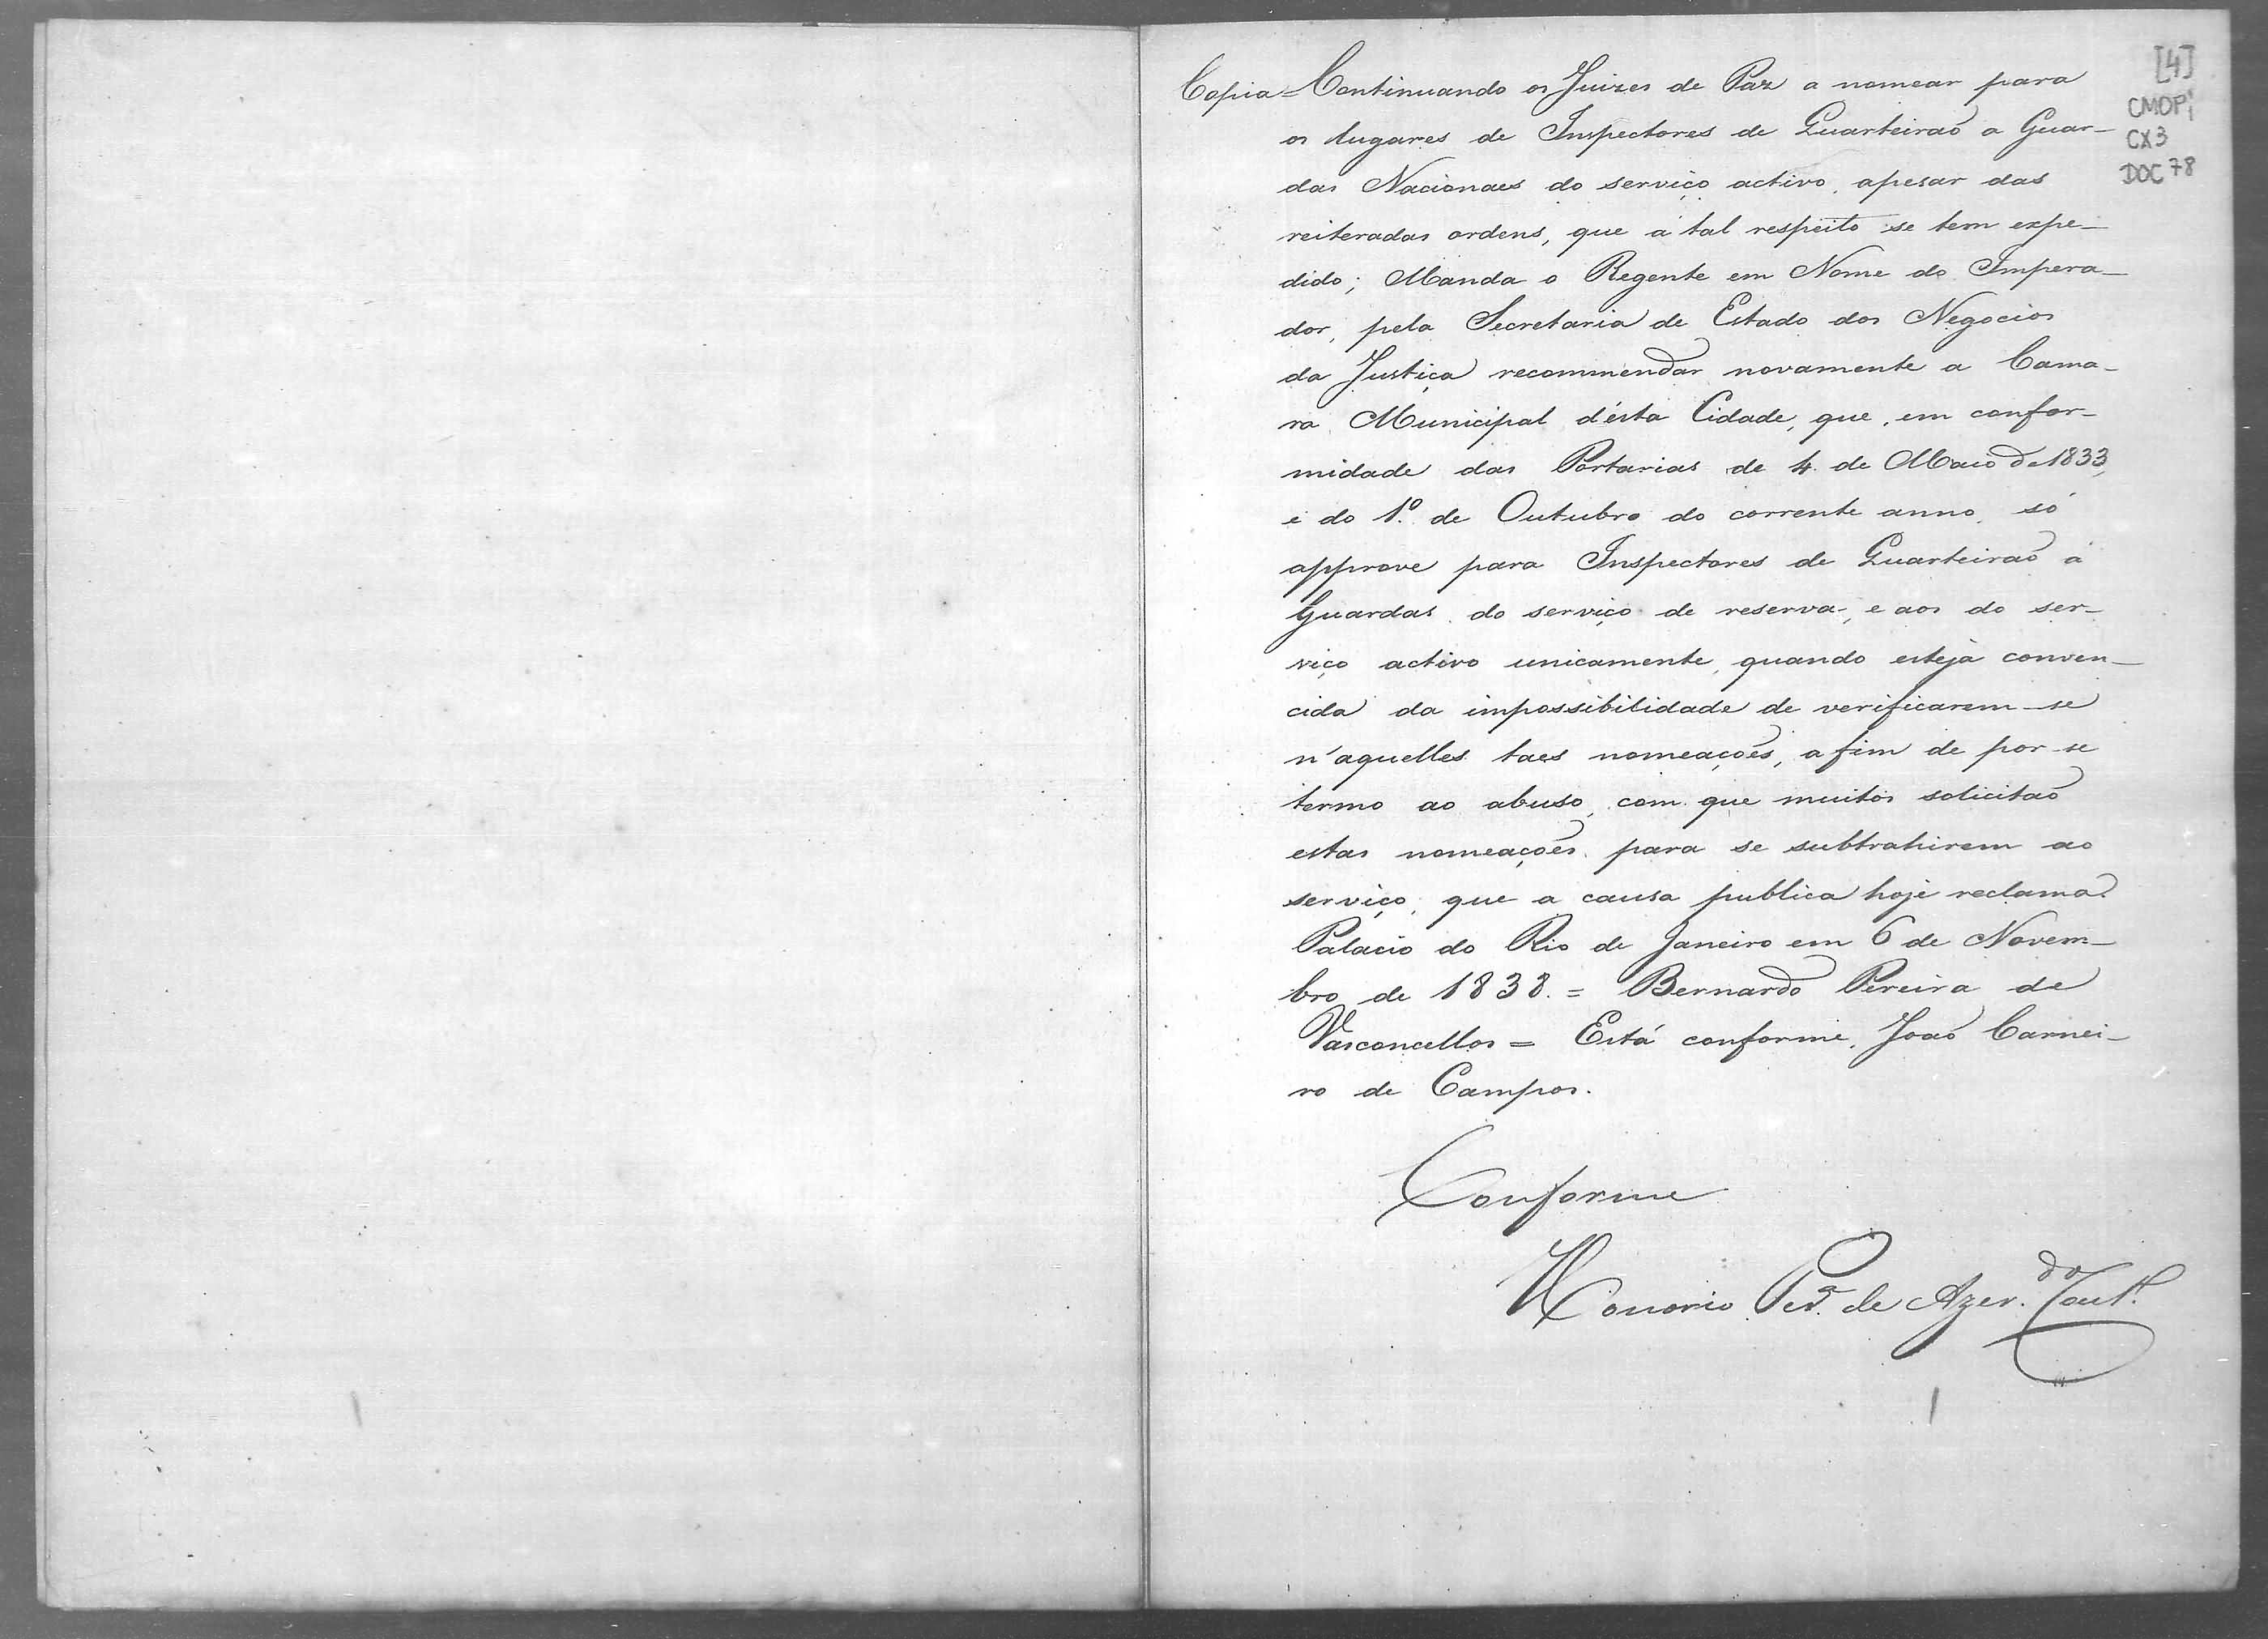 [4]
CMOPi
CX3
DOC 78
Copia = Continuando os Juizes de Paz a nomear para
os lugares de Inspectores de Quarteiraõ a Guar-
das Nacionaes do serviço activo, apesar das
reiteradas ordens, que á tal respeito se tem expe-
dido; Manda o Regente em Nome do Impera-
dor, pela Secretaria de Estado dos Negocios
da Justiça recommendar novamente a Cama-
ra Municipal d'ésta Cidade, que, em confor-
midade das Portarias de 4 de Maio de 1833,
e do 1.º de Outubro do corrente anno, só
approve para Inspectores de Quarteiraõ á
Guardas do serviço de reserva, e aos do ser-
viço activo unicamente, quando esteja conven-
cida da impossibilidade de verificarem-se
n'aquelles taes nomeaçoẽs, a fim de por-se
termo ao abuso, com que muitos solicitaõ
estas nomeaçoẽs para se subtrahirem ao
serviço, que a causa publica hoje reclama.
Palacio do Rio de Janeiro em 6 de Novem-
bro de 1838. = Bernardo Pereira de
Vasconcellos = Está conforme. Joaõ Carnei-
ro de Campos.
Conforme
Honorio Per.ª de Azer.do Cout.º